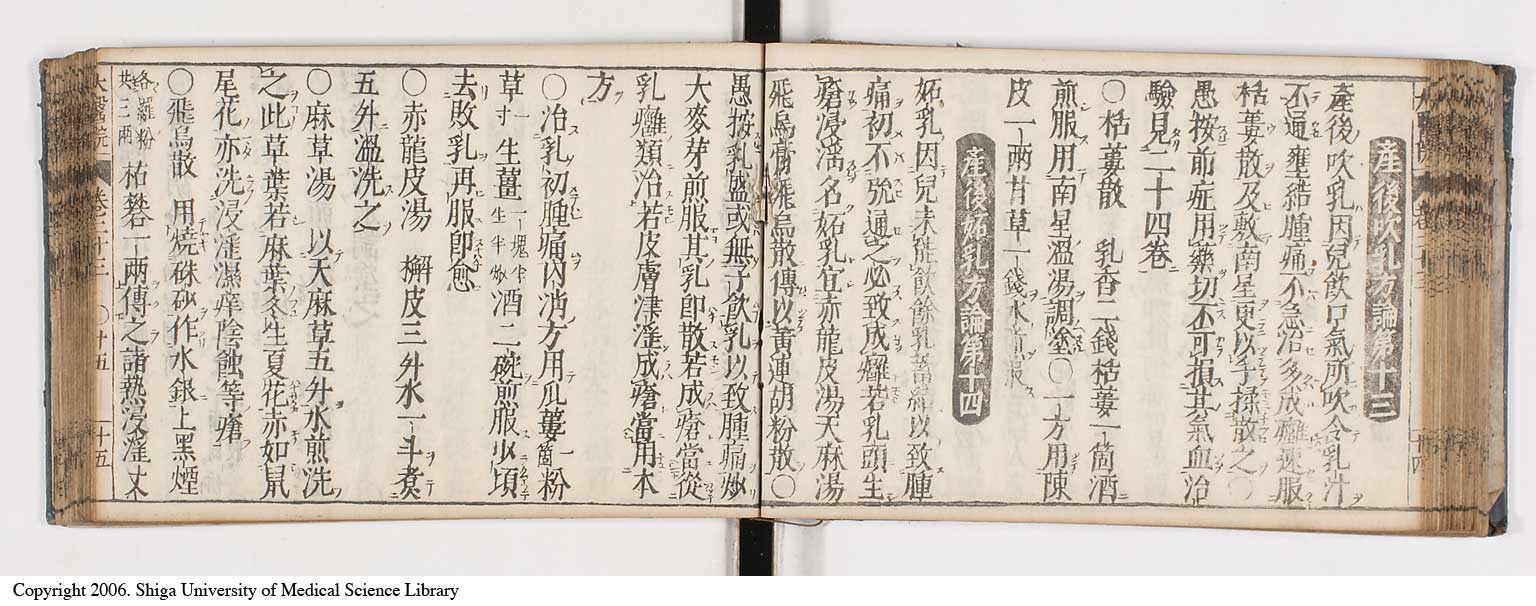 產後吹乳方論第十三
產後吹乳因兒飲口氣所吹令乳汁
不通壅結腫痛不急治多成癰速服
栝蔞散及敷南星更以手揉散之〇
愚按前症用藥切不可損其氣血治
驗見二十四卷
〇栝蔞散 乳香二錢栝蔞一箇酒
煎服用南星溫湯調塗〇一方用陳
皮一兩甘草一錢水煎服
產後妬乳方論第十四
妬乳因兒未能飲餘乳蓄結以致腫
痛初不疏通之必致成癰若乳頭生
瘡浸淌名妬乳宜赤龍皮湯天麻湯
飛烏膏飛烏散傅以黃連胡粉散〇
愚按乳盛或無子飲乳以致腫痛炒
大麥芽煎服其乳卽散若成瘡當從
乳癰類治若皮膚津淫成瘡當用本
方
〇治乳初腫痛內消方用瓜蔞一箇粉
草一寸生薑一塊半生半炒酒二碗煎服少頃
去敗乳再服卽愈
〇赤龍皮湯 槲皮三升水一斗煑
五升溫洗之
〇麻草湯 以天麻草五升水煎洗
之此草葉若麻葉冬生夏花赤如鼠
尾花亦洗浸淫濕痒陰蝕等瘡
〇飛烏散 用燒硃砂作水銀上黑煙
各三兩枯礬一兩傅之諸熱浸淫丈
卷二十三 〇十五 十五
Copyright 2006. Shiga University of Medical Science Library